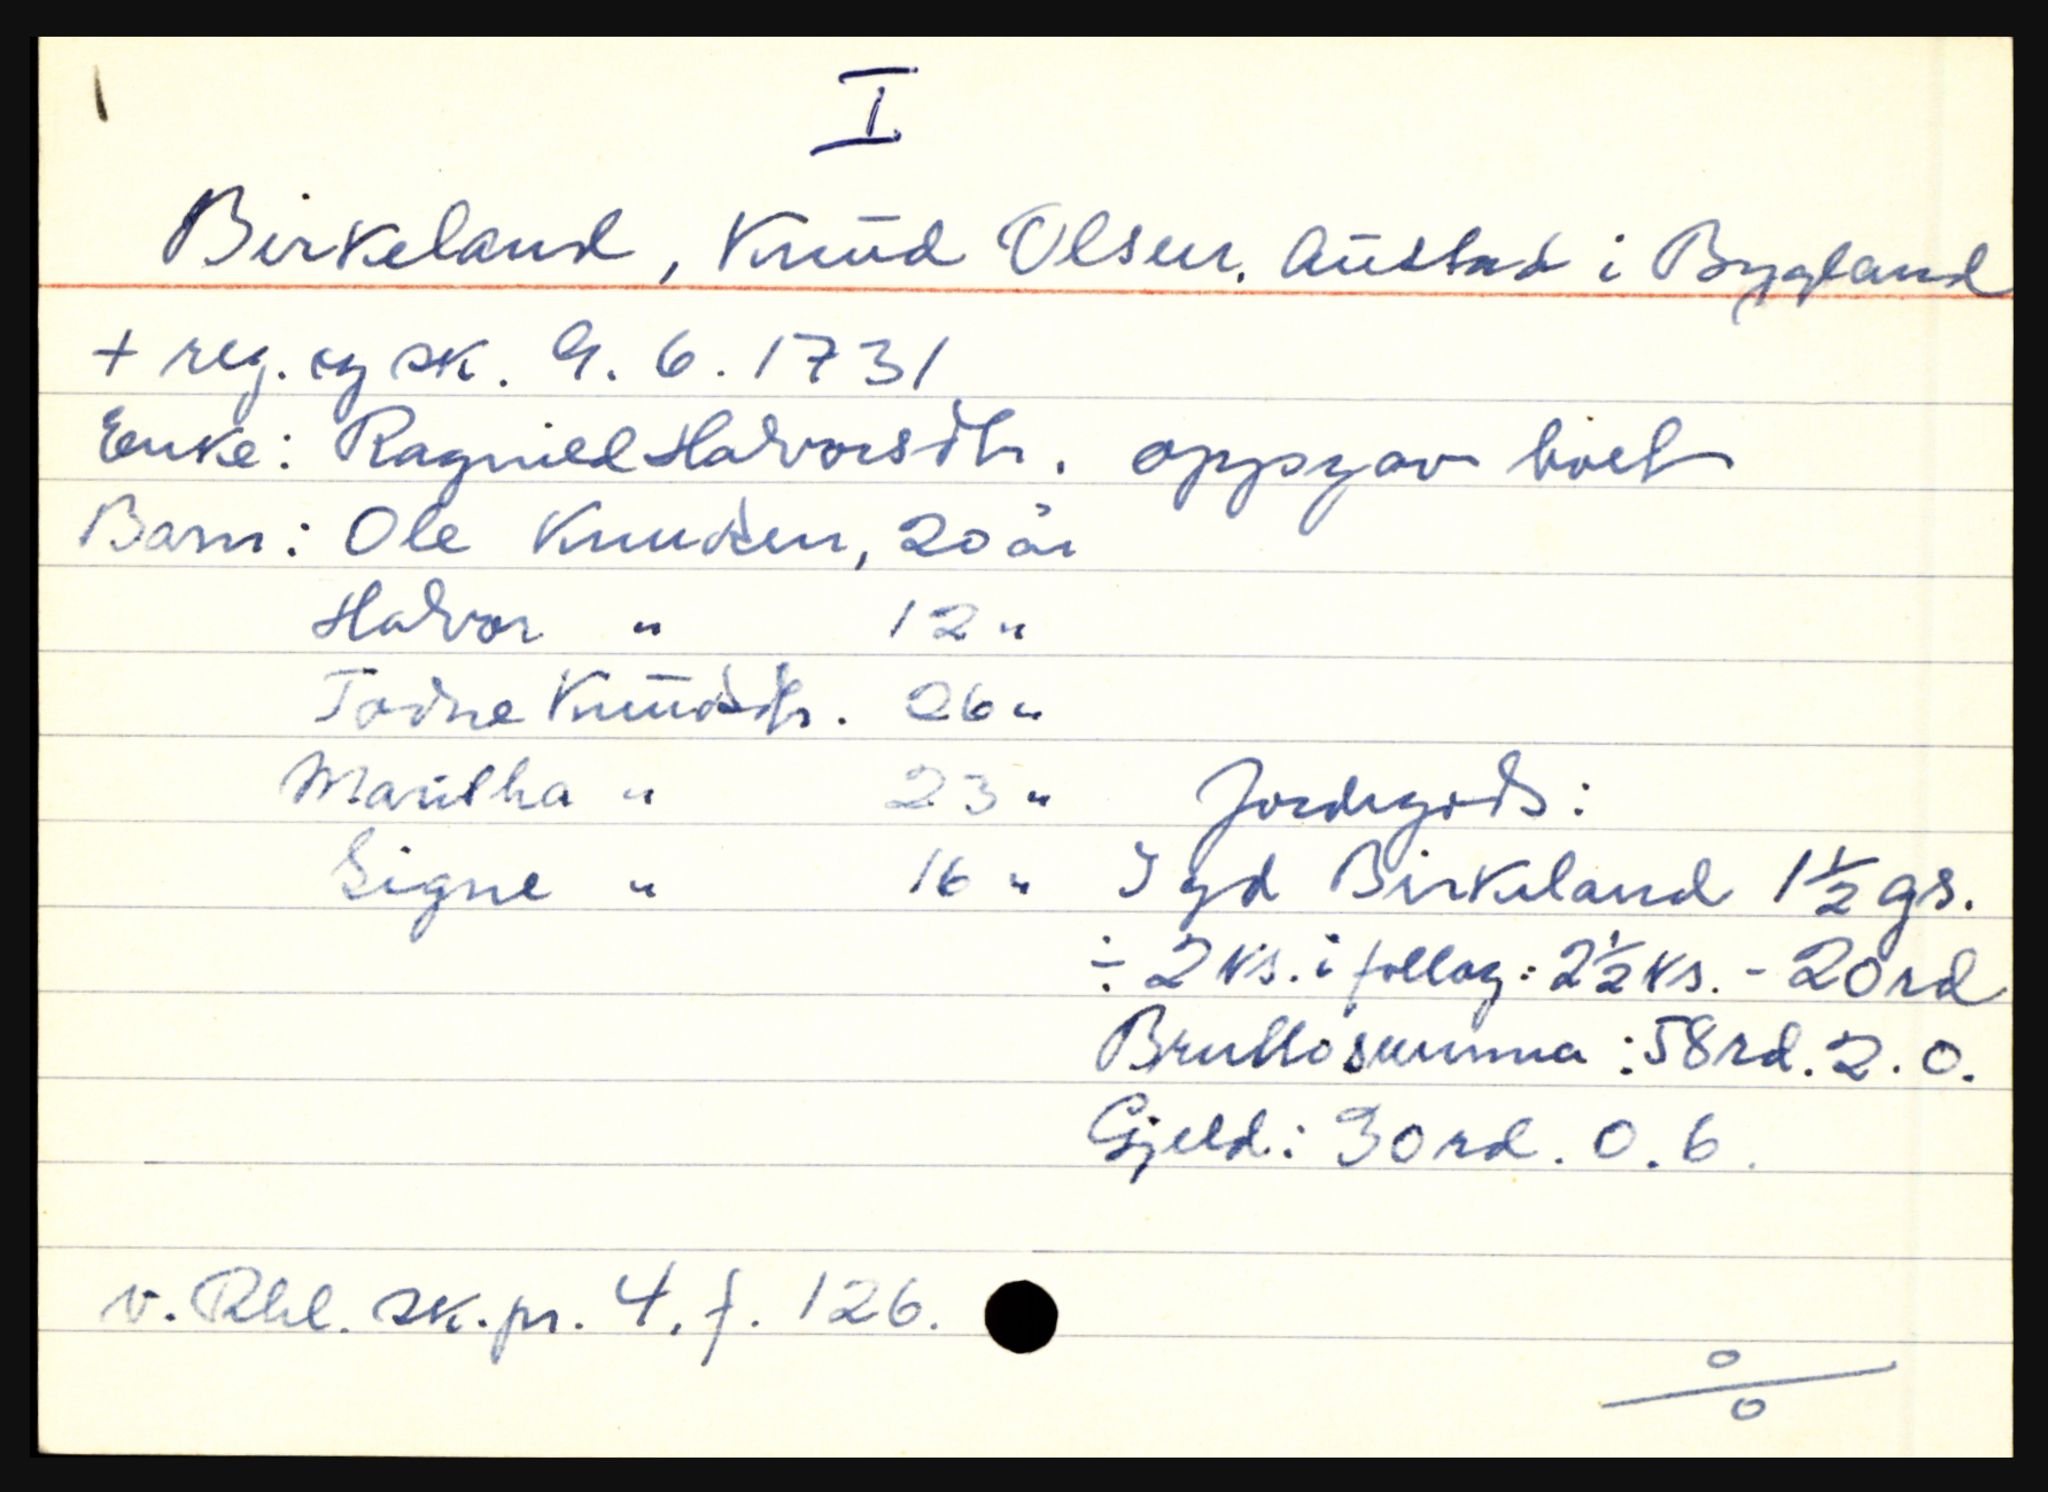 I
Birkeland, Knud Olsen. Austad i Bygland
+ reg. og sk. 9. 6. 1731
Enke: Ragnild Halvorsdtr. oppgav boet
Barn: Ole Knudsen, 20 år
Halvor " 12 "
Todne Knudsdtr. 26 "
Maritha " 23 " Jordegods:
Signe " 16 " I gd Birkeland 1 1/2 gs.
÷ 2 ks. i follag: 2 1/2 ks. - 20 rd
Bruttosumma: 58 rd. 2. 0.
Gjeld: 30 rd. 0. 6.
v. Rbl. sk. pr. 4. f. 126.
o/o